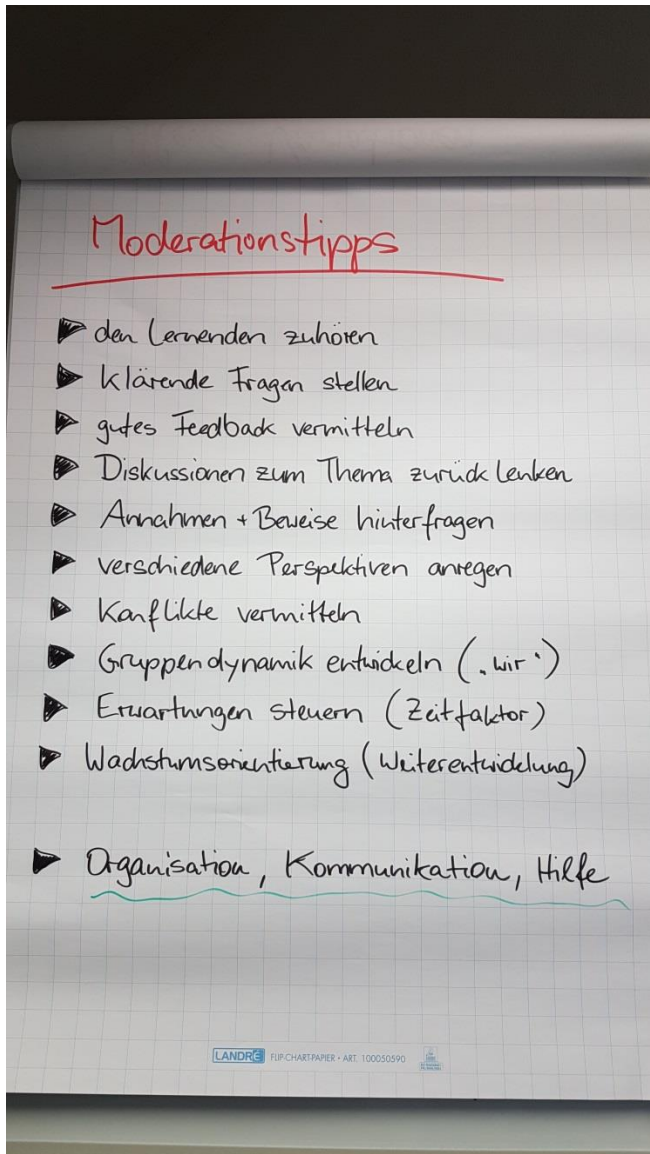 Moderationstipps
den Lernenden zuhören
klärende Fragen stellen
gutes Feedback vermitteln
Diskussionen zum Thema zurück lenken
Annahmen + Beweise hinterfragen
verschiedene Perspektiven anregen
Konflikte vermitteln
Gruppendynamik entwickeln („wir“)
Erwartungen steuern (Zeitfaktor)
Wachstumsorientierung (Weiterentwicklung)
Organisation, Kommunikation, Hilfe
LANDRÉ FLIP-CHART-PAPIER • ART. 100050590